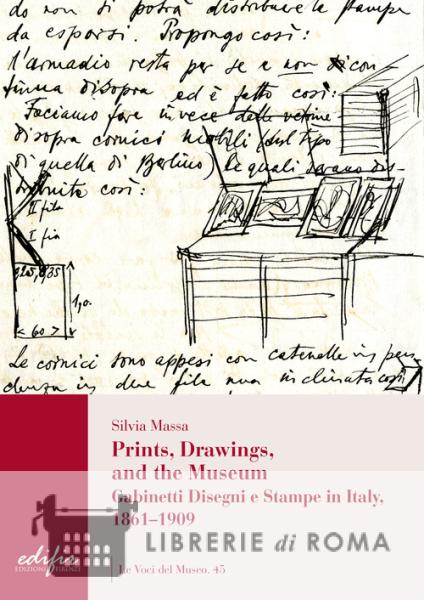 do non si potrà distribuire le stampe
da esporsi. Propongo così:
l'armadio resta per se e non con
tinua disopra ed è fatto così:
Facciamo fare invece delle vetrine
disopra cornici mobili (sul tipo
di quella di Berlino) le quali
così:
II fila
I fila
1,0.
< 60 >
Le cornici sono appesi con catenelle in pen
denza in due file una inclinata così
Silvia Massa
Prints, Drawings,
and the Museum
Gabinetti Disegni e Stampe in Italy,
1861–1909
LIBRERIE di ROMA
edifir
EDIZIONI FIRENZE
Le Voci del Museo. 45